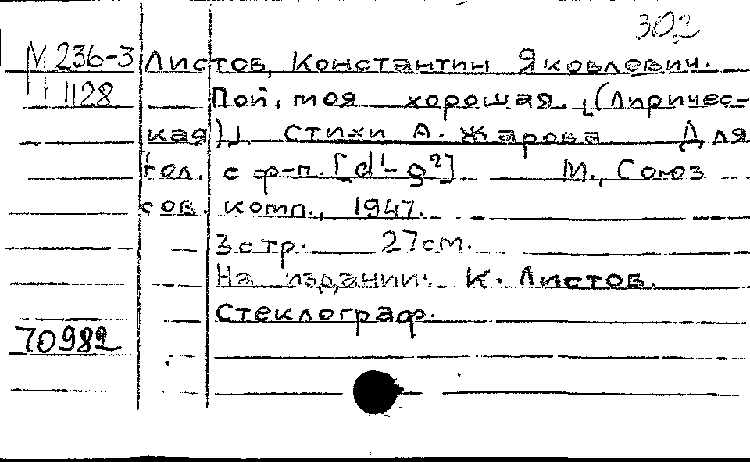 302
М 236-3 Листов, Константин Яковлевич.
1128 Пой, моя хорошая. [(Лиричес-
кая)]. Стихи А. Жарова Для
гол. с ф-п. [d¹-g²]. М., Союз
сов. комп., 1947.
3 стр. 27 см.
На издании: К. Листов.
Стеклограф.
70982